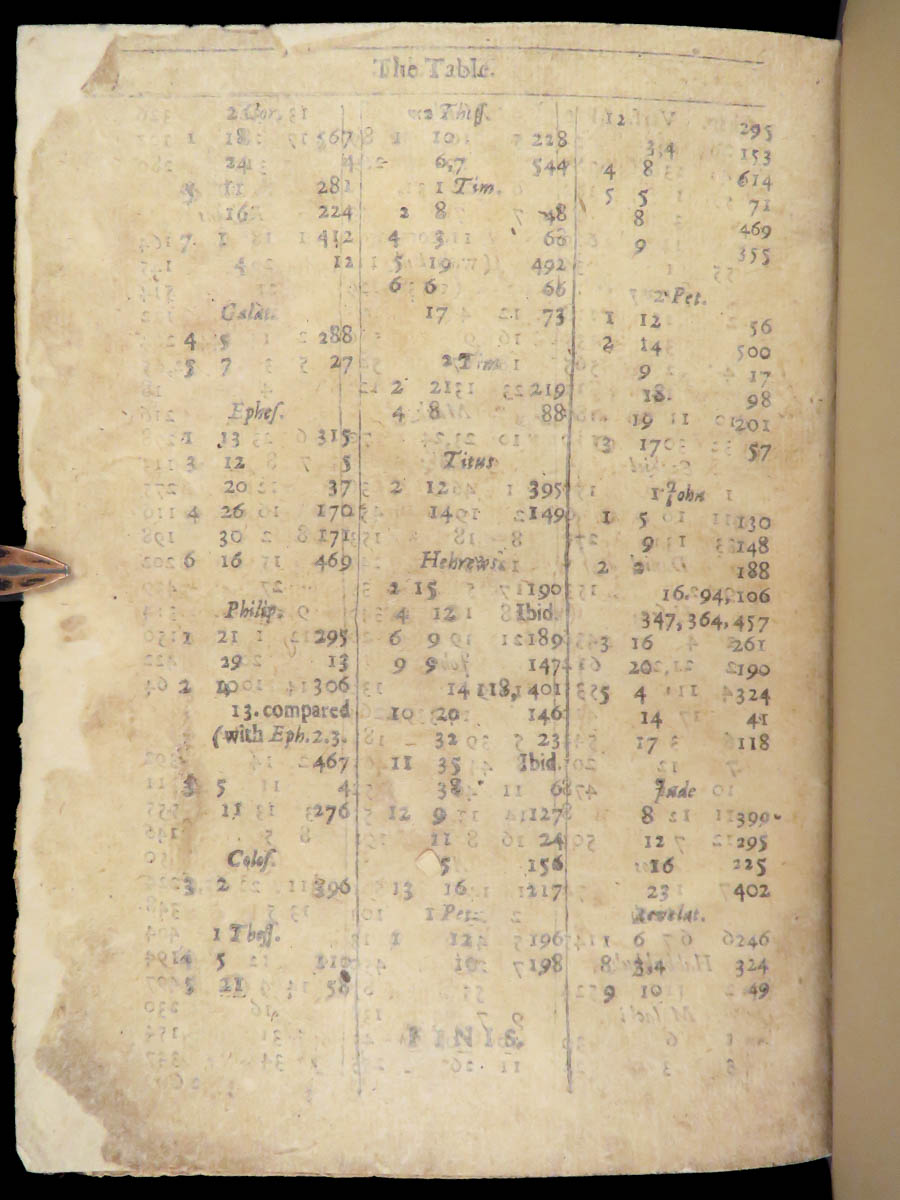 The Table.
2 Cor.
1 18 567
24 4
5 11 281
16 224
7 1 412
4 12
Galat.
4 5 288
5 7 27
Ephes.
1 13 315
3 12 5
20 37
4 26 170
30 171
6 16 469
Philip.
1 21 295
29 13
2 306
13. compared
(with Eph. 2.3.
467
3 5 4
11 276
Colos.
3 2 396
1 Thess.
4 5 110
5 21 58
2 Thess.
1 10 228
6,7 544
1 Tim.
2 8 48
4 3 66
5 19 492
6 6 66
17 73
2 Tim.
2 21 219
4 8 88
Titus
2 12 395
14 149
Hebrews.
2 15 190
4 12 Ibid.
6 9 189
9 9 147
14 118, 401
10 20 146
32 23
11 35 Ibid.
38 6
12 9 127
11 24
156
13 16 217
1 Pet.
1 12 196
198
12 295
3,4 153
4 8 614
5 5 71
8 469
9 355
2 Pet.
1 12 56
2 14 500
9 17
18. 98
19 201
3 17 57
1 John
1 5 130
9 148
2 2 188
16. 94, 106
347, 364, 457
3 16 261
20 190
5 4 324
14 41
17 118
Jude
8 399
12 295
16 225
23 402
Revelat.
1 6 246
8 3,4 324
9 10 49
FINIS.